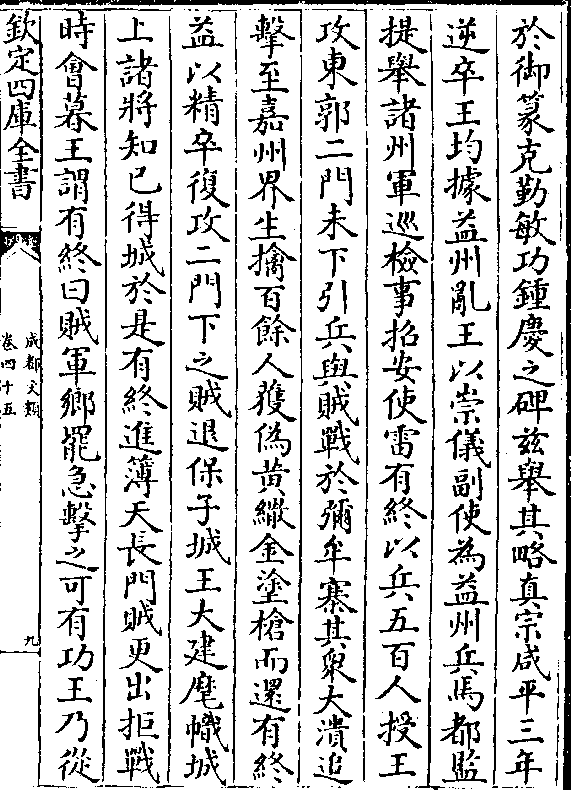 於御篆克勤敏功鍾慶之碑兹舉其略真宗咸平三年
逆卒王均據益州亂王以崇儀副使為益州兵馬都監
提舉諸州軍巡檢事招安使雷有終以兵五百人授王
攻東郭二門未下引兵與賊戰於彌牟寨其衆大潰追
擊至嘉州界生擒百餘人獲偽黄繖金塗槍而還有終
益以精卒復攻二門下之賊退保子城王大建麾幟城
上諸將知已得城於是有終進簿天長門賊更出拒戰
時會暮王謂有終曰賊軍鄉罷急擊之可有功王乃從
欽定四庫全書
成都文類
卷四十五
九